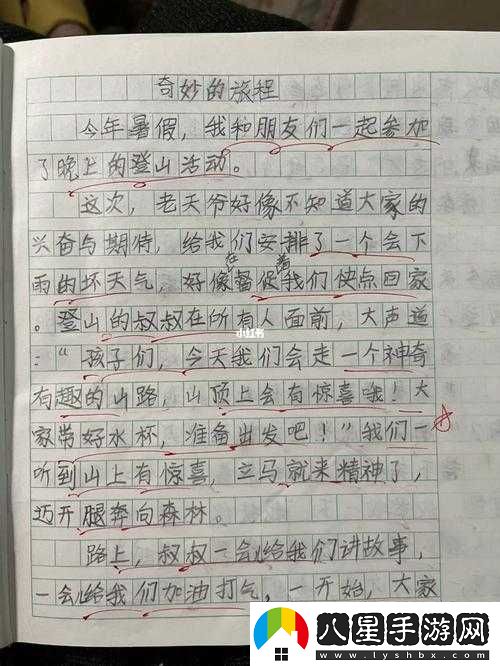 奇妙的旅程
今年暑假，我和朋友们一起参加
了晚上的登山活动。
这次，老天爷好像不知道大家的
兴奋与期待，给我们安排了一个会下
雨的坏天气，好像在督促着我们快点回家
。登山的叔叔在所有人面前，大声道
：“孩子们，今天我们会走一个神奇
有趣的山路，山顶上会有惊喜哦！大
家带好水杯，准备出发吧！”我们一
听到山上有惊喜，立马就来精神了，
迈开腿奔向森林。
路上，叔叔一会儿给我们讲故事，
一会儿给我们加油打气，一开始，大家
小红书
八星手游网
www.lyshbx.com